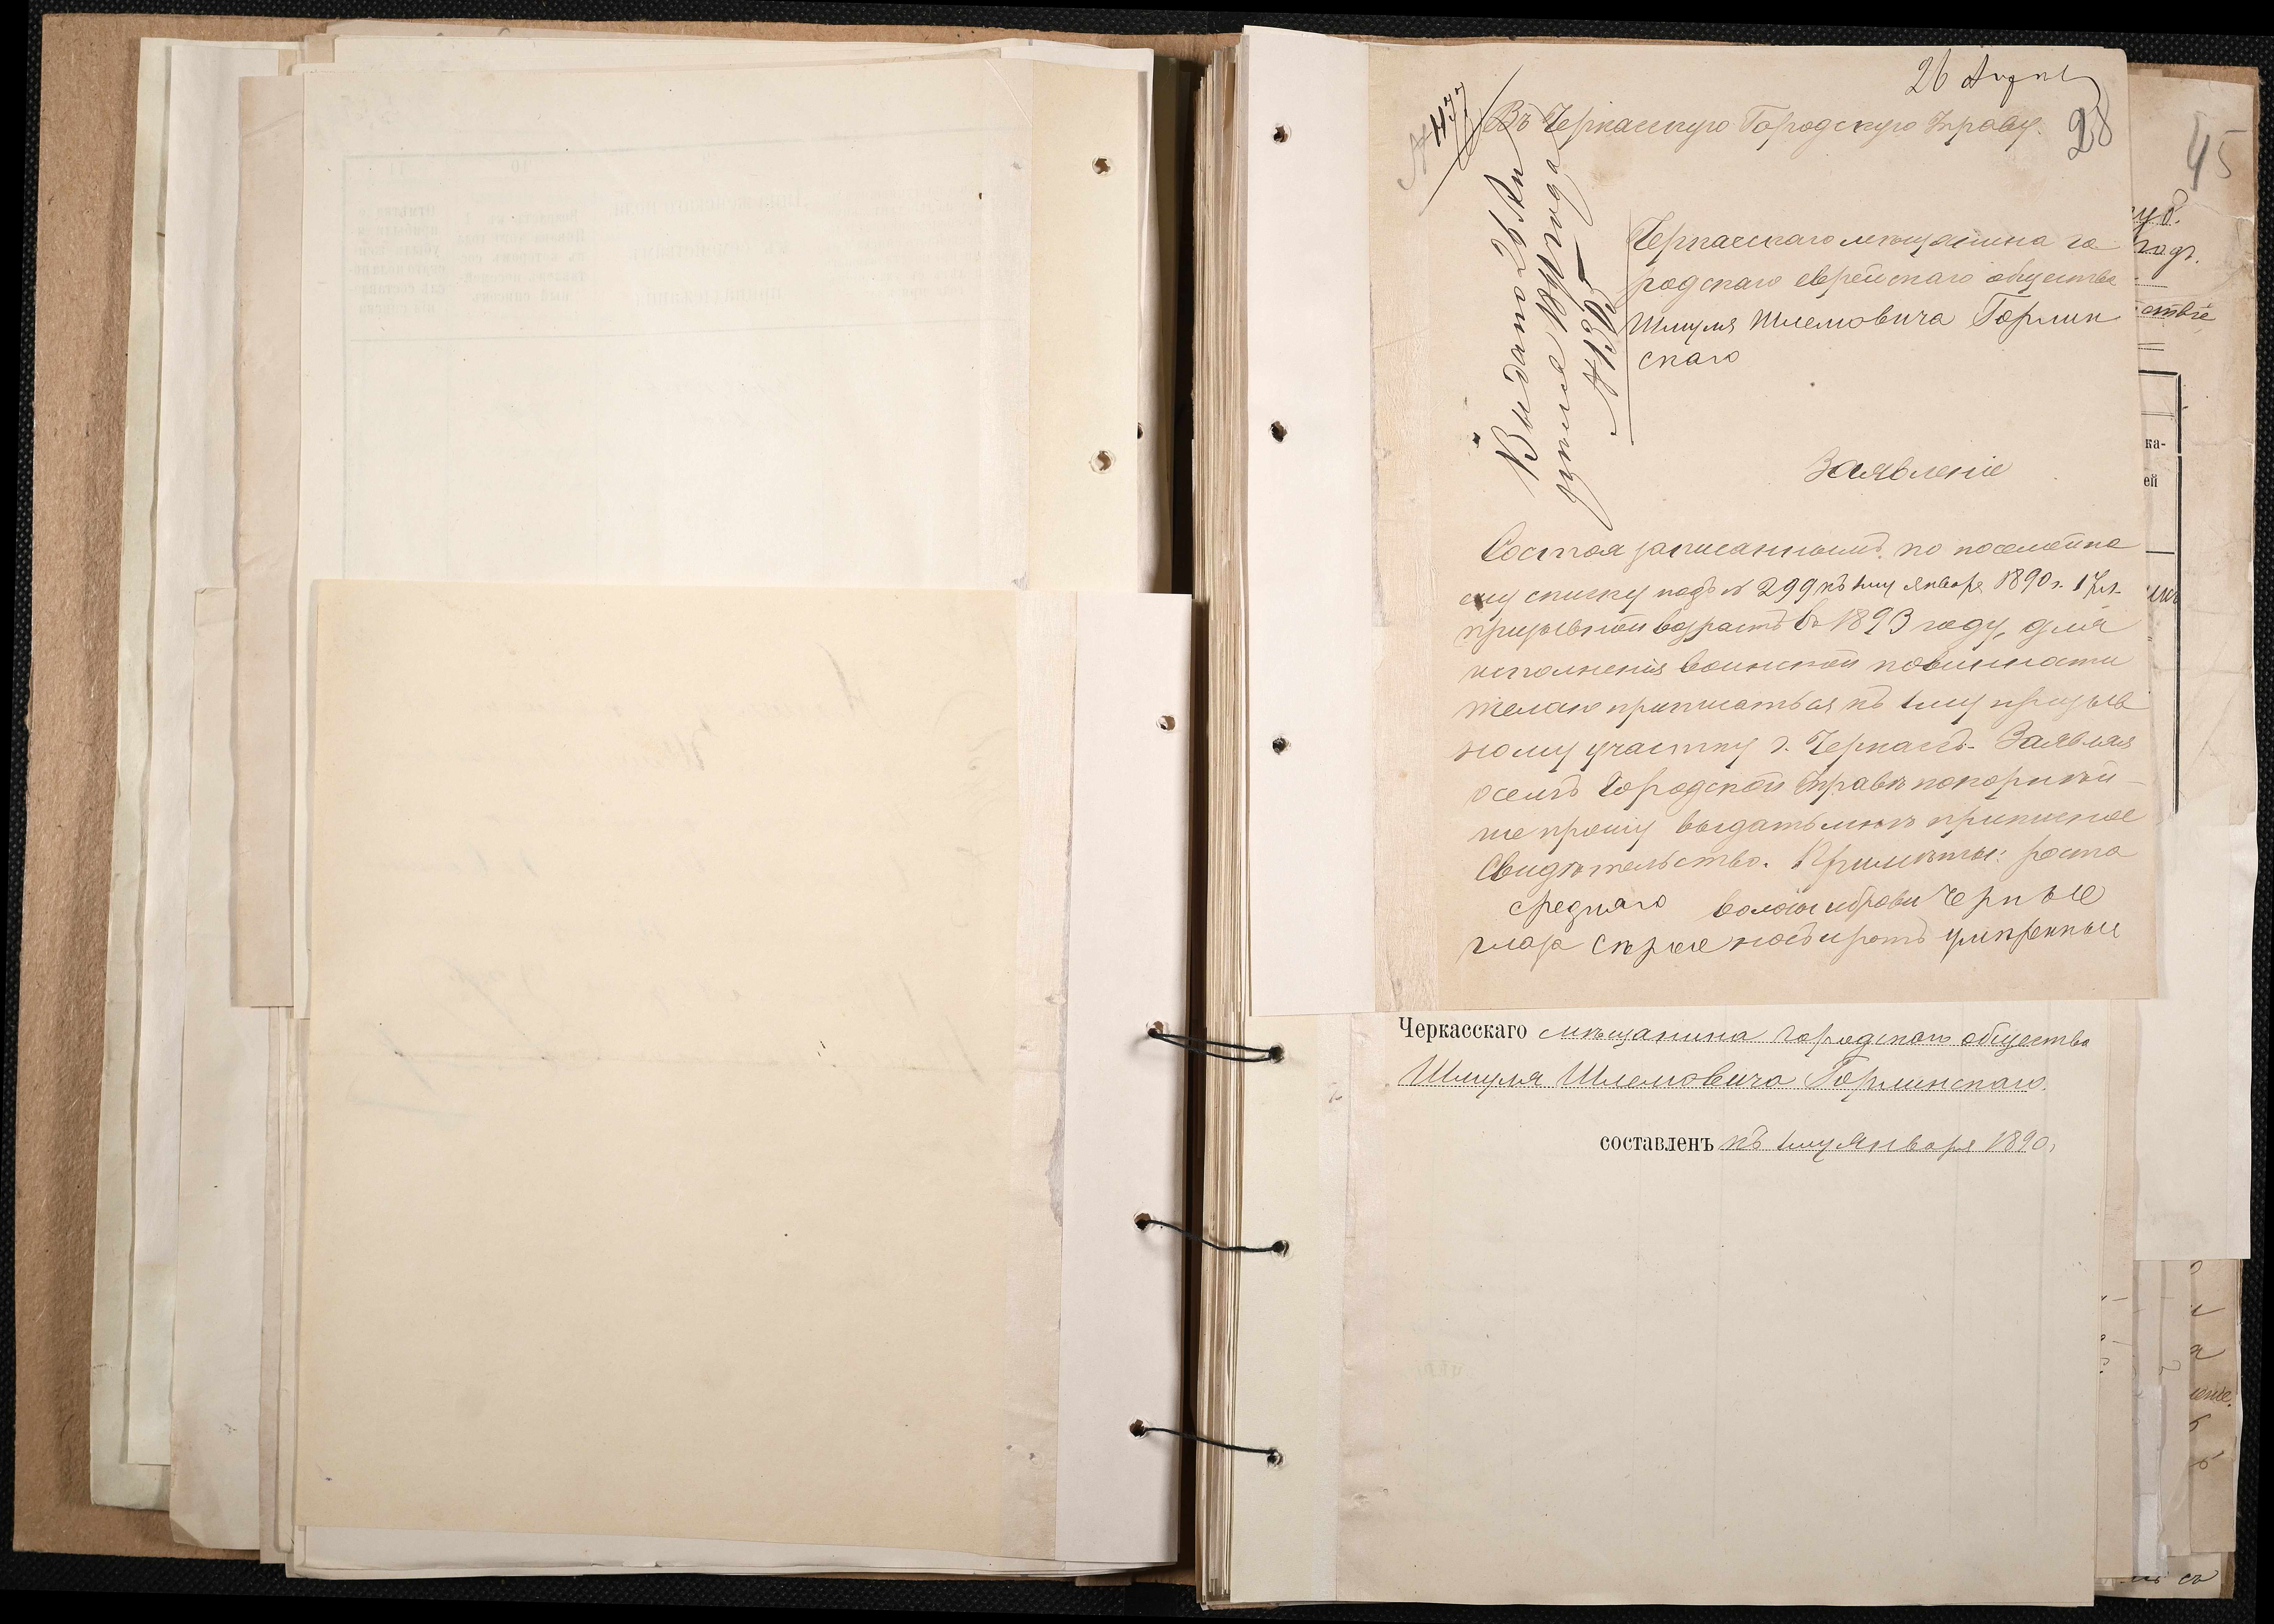 26 Апрел
28
№ 477
Въ Черкасскую Городскую Управу.
Выдано 26 Ап
реля 1891 года
№ 1395
Черкасскаго мѣщанина го
родскаго еврейскаго общества
Шмуля Шлемовича Горлин
скаго
Заявленіе
Состоя записаннымъ по посемейно
му списку подъ № 299 къ 1му Января 1890 г. 17 л.
призывной возрастъ въ 1893 году, для
исполненія воинской повинности
желаю приписаться къ 1му призыв
ному участку г. Черкасъ. Заявляя
о семъ Городской Управѣ покорнѣй-
ше прошу выдать мнѣ приписное
Свидѣтельство. Примѣты: роста
средняго волосы и брови черные
глаза сѣрые носъ и ротъ умѣренные
Черкасскаго мѣщанина городскаго общества
Шмуля Шлемовича Горлинскаго.
составленъ къ 1му Января 1890.
45
уб.
годъ.
ствѣ
ка-
ей